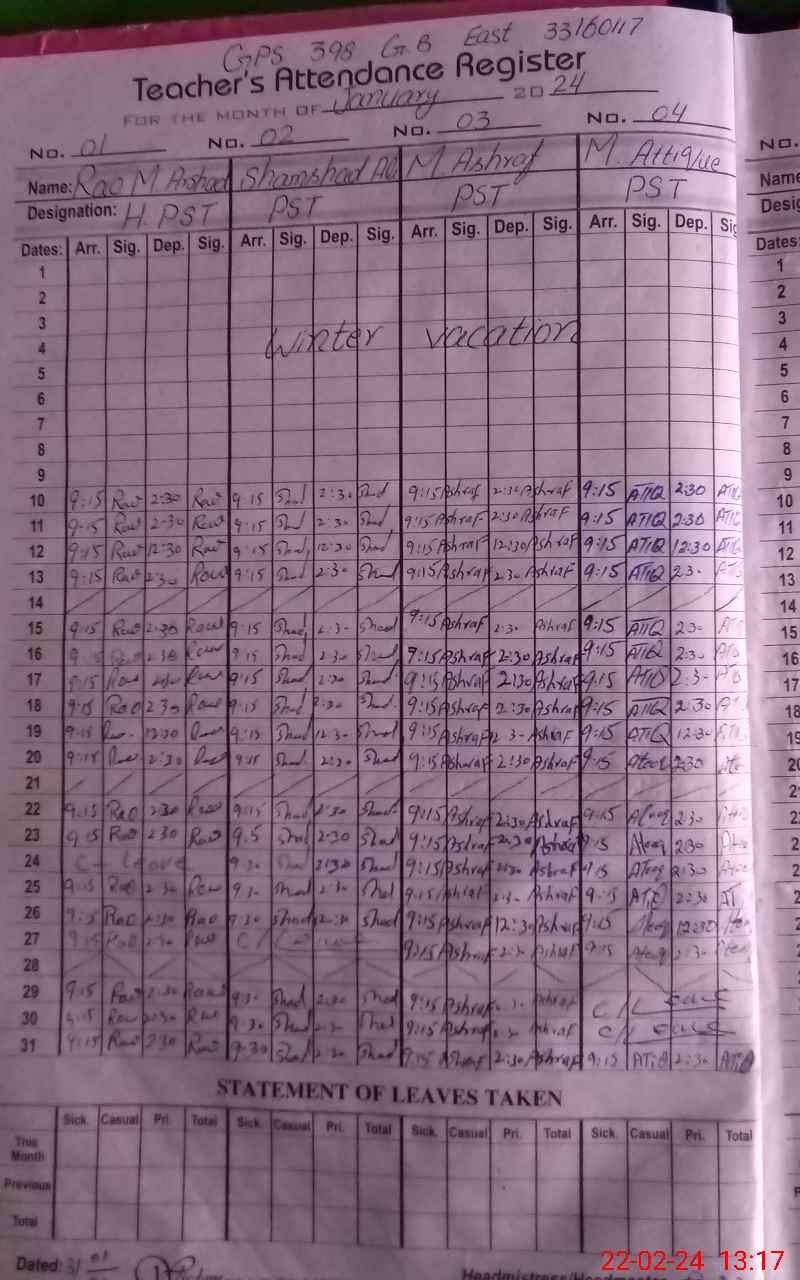 GPS 398 G.B East 33160117
Teacher's Attendance Register
FOR THE MONTH OF January 2024
No. 01 No. 02 No. 03 No. 04 No.
Name: Rao M. Arshad Shamshad Ali M Ashraf M. Attique Name
Designation: H. PST PST PST PST
Dates: Arr. Sig. Dep. Sig. Arr. Sig. Dep. Sig. Arr. Sig. Dep. Sig. Arr. Sig. Dep. Sig Dates:
1 1
2 2
3 3
Winter vacation
4 4
5 5
6 6
7 7
8 8
9 9
10 9:15 Rao 2:30 Rao 9:15 Shad 2:30 Shad 9:15 Ashraf 2:30 Ashraf 9:15 ATIQ 2:30 10
11 9:15 Rao 2:30 Rao 9:15 Shad 2:30 Shad 9:15 Ashraf 2:30 Ashraf 9:15 ATIQ 2:30 11
12 9:15 Rao 12:30 Rao 9:15 Shad 12:30 Shad 9:15 Ashraf 12:30 Ashraf 9:15 ATIQ 12:30 12
13 9:15 Rao 2:30 Rao 9:15 Shad 2:30 Shad 9:15 Ashraf 2:30 Ashraf 9:15 ATIQ 2:30 13
14 14
15 9:15 Rao 2:30 Rao 9:15 Shad 2:30 Shad 9:15 Ashraf 2:30 Ashraf 9:15 ATIQ 2:30 15
16 9:15 Rao 2:30 Rao 9:15 Shad 2:30 Shad 9:15 Ashraf 2:30 Ashraf 9:15 ATIQ 2:30 16
17 9:15 Rao 2:30 Rao 9:15 Shad 2:30 Shad 9:15 Ashraf 2:30 Ashraf 9:15 ATIQ 2:30 17
18 9:15 Rao 2:30 Rao 9:15 Shad 2:30 Shad 9:15 Ashraf 2:30 Ashraf 9:15 ATIQ 2:30 18
19 9:15 Rao 12:30 Rao 9:15 Shad 12:30 Shad 9:15 Ashraf 12:30 Ashraf 9:15 ATIQ 12:30 19
20 9:15 Rao 2:30 Rao 9:15 Shad 2:30 Shad 9:15 Ashraf 2:30 Ashraf 9:15 Ateeq 2:30 20
21
22 9:15 Rao 2:30 Rao 9:15 Shad 2:30 Shad 9:15 Ashraf 2:30 Ashraf 9:15 Ateeq 2:30
23 9:15 Rao 2:30 Rao 9:15 Shad 2:30 Shad 9:15 Ashraf 2:30 Ashraf 9:15 Ateeq 2:30
24 C/ leave 9:30 Shad 2:30 Shad 9:15 Ashraf 2:30 Ashraf 9:15 Ateeq 2:30
25 9:15 Rao 2:30 Rao 9:30 Shad 2:30 Shad 9:15 Ashraf 2:30 Ashraf 9:15 ATiQ 2:30
26 9:15 Rao 2:30 Rao 9:30 Shad 2:30 Shad 9:15 Ashraf 12:30 Ashraf 9:15 Ateeq 12:30
27 9:15 Rao 2:30 Rao C/Leave 9:15 Ashraf 2:30 Ashraf 9:15 Ateeq 2:30
28
29 9:15 Rao 2:30 Rao 9:30 Shad 2:30 Shad 9:15 Ashraf 2:30 Ashraf C/Leave
30 9:15 Rao 2:30 Rao 9:30 Shad 2:30 Shad 9:15 Ashraf 2:30 Ashraf C/Leave
31 9:15 Rao 2:30 Rao 9:30 Shad 2:30 Shad 9:15 Ashraf 2:30 Ashraf 9:15 ATiQ 2:30 ATiQ
STATEMENT OF LEAVES TAKEN
Sick. Casual Pri. Total Sick. Casual Pri. Total Sick. Casual Pri. Total Sick. Casual Pri. Total
This Month
Previous
Total
Dated: 31 01
22-02-24 13:17